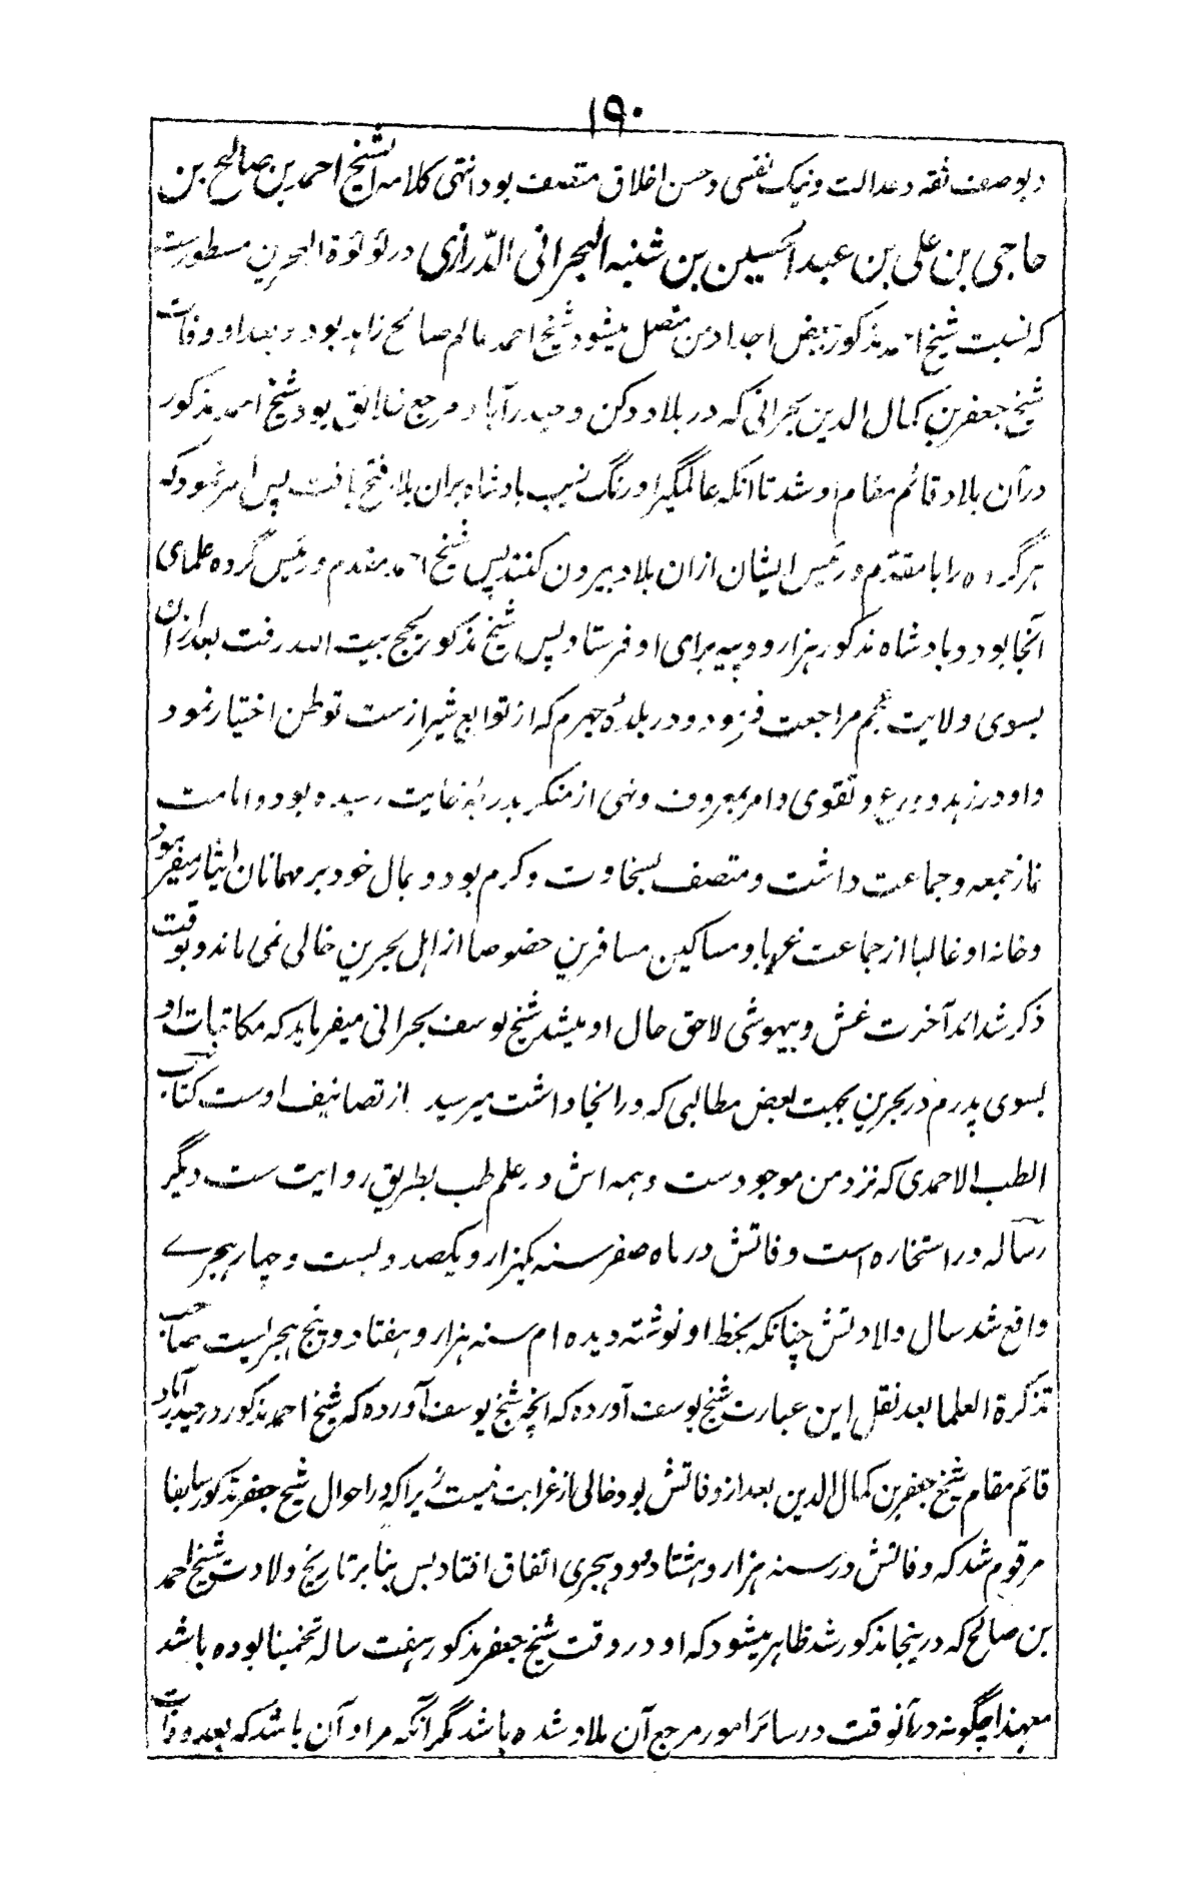 ۱۹۰
و بوصف ثقه و عدالت و نیک نفسی و حسن اخلاق متصف بود انتهی کلامه الشیخ احمد بن صالح بن
حاجی بن علی بن عبد الحسین بن شنبه البحرانی الدّرازی در لؤلؤة البحرین مسطورست
که نسبت شیخ احمد مذکور ببعض اجداد من متصل میشود شیخ احمد عالم صالح زاهد بود و بعد او وفات
شیخ جعفر بن کمال الدین بحرانی که در بلاد دکن و حیدرآباد مرجع خلائق بود شیخ احمد مذکور
در آن بلاد قائم مقام او شد تا انکه عالمگیر اورنگ زیب بادشاه بران بلاد فتح یافت پس امر نمود که
هر گروه را با مقدم و رئیس ایشان ازان بلاد بیرون کنند پس شیخ احمد مقدم و رئیس گروه علمای
آنجا بود و بادشاه مذکور هزار روپیه برای او فرستاد پس شیخ مذکور بحج بیت الله رفت بعد ازان
بسوی ولایت عجم مراجعت فرمود و در بلدهٔ جهرم که از توابع شیرازست توطن اختیار نمود
و او در زهد و ورع و تقوی و امر بمعروف و نهی از منکر بدرجهٔ غایت رسیده بود و امامت
نماز جمعه و جماعت داشت و متصف بسخاوت و کرم بود و بمال خود بر مهمانان ایثار میفرمود
و خانه او غالبا از جماعت غربا و مساکین مسافرین خصوصا از اهل بحرین خالی نمی ماند و بوقت
ذکر شدائد آخرت غش و بیهوشی لاحق حال او میشد شیخ یوسف بحرانی میفرماید که مکاتبات او
بسوی پدرم در بحرین بجهت بعض مطالبی که در انجا داشت میرسید از تصانیف اوست کتاب
الطب الاحمدی که نزد من موجودست و همه اش در علم طب بطریق روایت ست دیگر
رساله در استخاره است وفاتش در ماه صفر سنه یکهزار و یکصد و بست و چهار هجرے
واقع شد سال ولادتش چنانکه بخط او نوشته دیده ام سنه هزار و هفتاد و پنج هجریست صاحب
تذکرة العلما بعد نقل این عبارت شیخ یوسف آورده که انچه شیخ یوسف آورده که شیخ احمد مذکور در حیدرآباد
قائم مقام شیخ جعفر بن کمال الدین بعد از وفاتش بود خالی از غرابت نیست زیرا که در احوال شیخ جعفر مذکور سابقا
مرقوم شد که وفاتش در سنه هزار و هشتاد و هجری اتفاق افتاد پس بنا بر تاریخ ولادت شیخ احمد
بن صالح که درینجا مذکور شد ظاهر میشود که او در وقت شیخ جعفر مذکور هفت ساله تخمینا بوده باشد
معهذا چگونه در آنوقت در سائر امور مرجع آن بلاد شده باشد مگر آنکه مراد آن باشد که بعد وفات